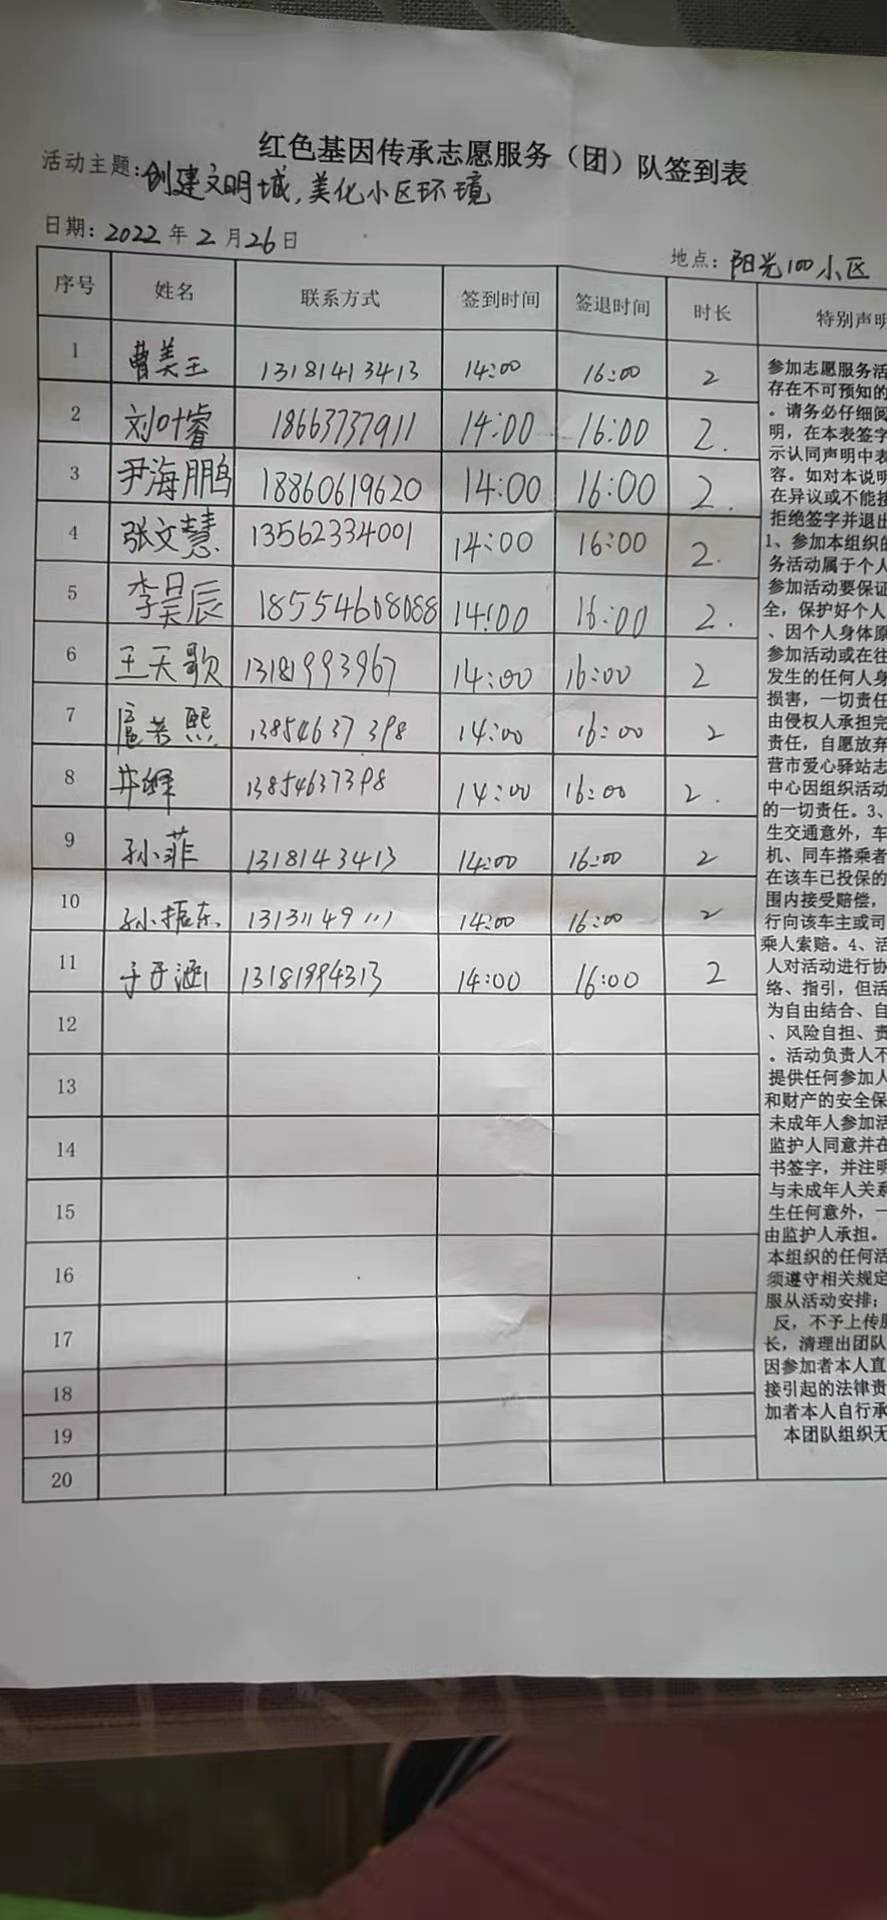 红色基因传承志愿服务（团）队签到表
活动主题：创建文明城，美化小区环境
日期：2022年2月26日
地点：阳光100小区
序号 姓名 联系方式 签到时间 签退时间 时长 特别声明
1 曹美玉 13181413413 14:00 16:00 2
2 刘叶睿 18663737911 14:00 16:00 2.
3 尹海鹏 18860619620 14:00 16:00 2.
4 张文慧 13562334001 14:00 16:00 2.
5 李昊辰 18554608088 14:00 16:00 2.
6 王天歌 13181993967 14:00 16:00 2
7 熙 13854637398 14:00 16:00 2
8 井 13854637398 14:00 16:00 2.
9 孙菲 1318143413 14:00 16:00 2
10 孙振东 1313114911 14:00 16:00 2
11 于子涵 13181994313 14:00 16:00 2
12
13
14
15
16
17
18
19
20
参加志愿服务活
存在不可预知的
。请务必仔细阅
明，在本表签字
示认同声明中表
容。如对本说明
在异议或不能接
拒绝签字并退出
1、参加本组织的
务活动属于个人
参加活动要保证
全，保护好个人
、因个人身体原
参加活动或在往
发生的任何人身
损害，一切责任
由侵权人承担完
责任，自愿放弃
营市爱心驿站志
中心因组织活动
的一切责任。3、
生交通意外，车
机、同车搭乘者
在该车已投保的
围内接受赔偿，
行向该车主或司
乘人索赔。4、活
人对活动进行协
络、指引，但活
为自由结合、自
、风险自担、责
。活动负责人不
提供任何参加人
和财产的安全保
未成年人参加活
监护人同意并在
书签字，并注明
与未成年人关系
生任何意外，一
由监护人承担。
本组织的任何活
须遵守相关规定
服从活动安排；
反，不予上传服
长，清理出团队
因参加者本人直
接引起的法律责
加者本人自行承
本团队组织无